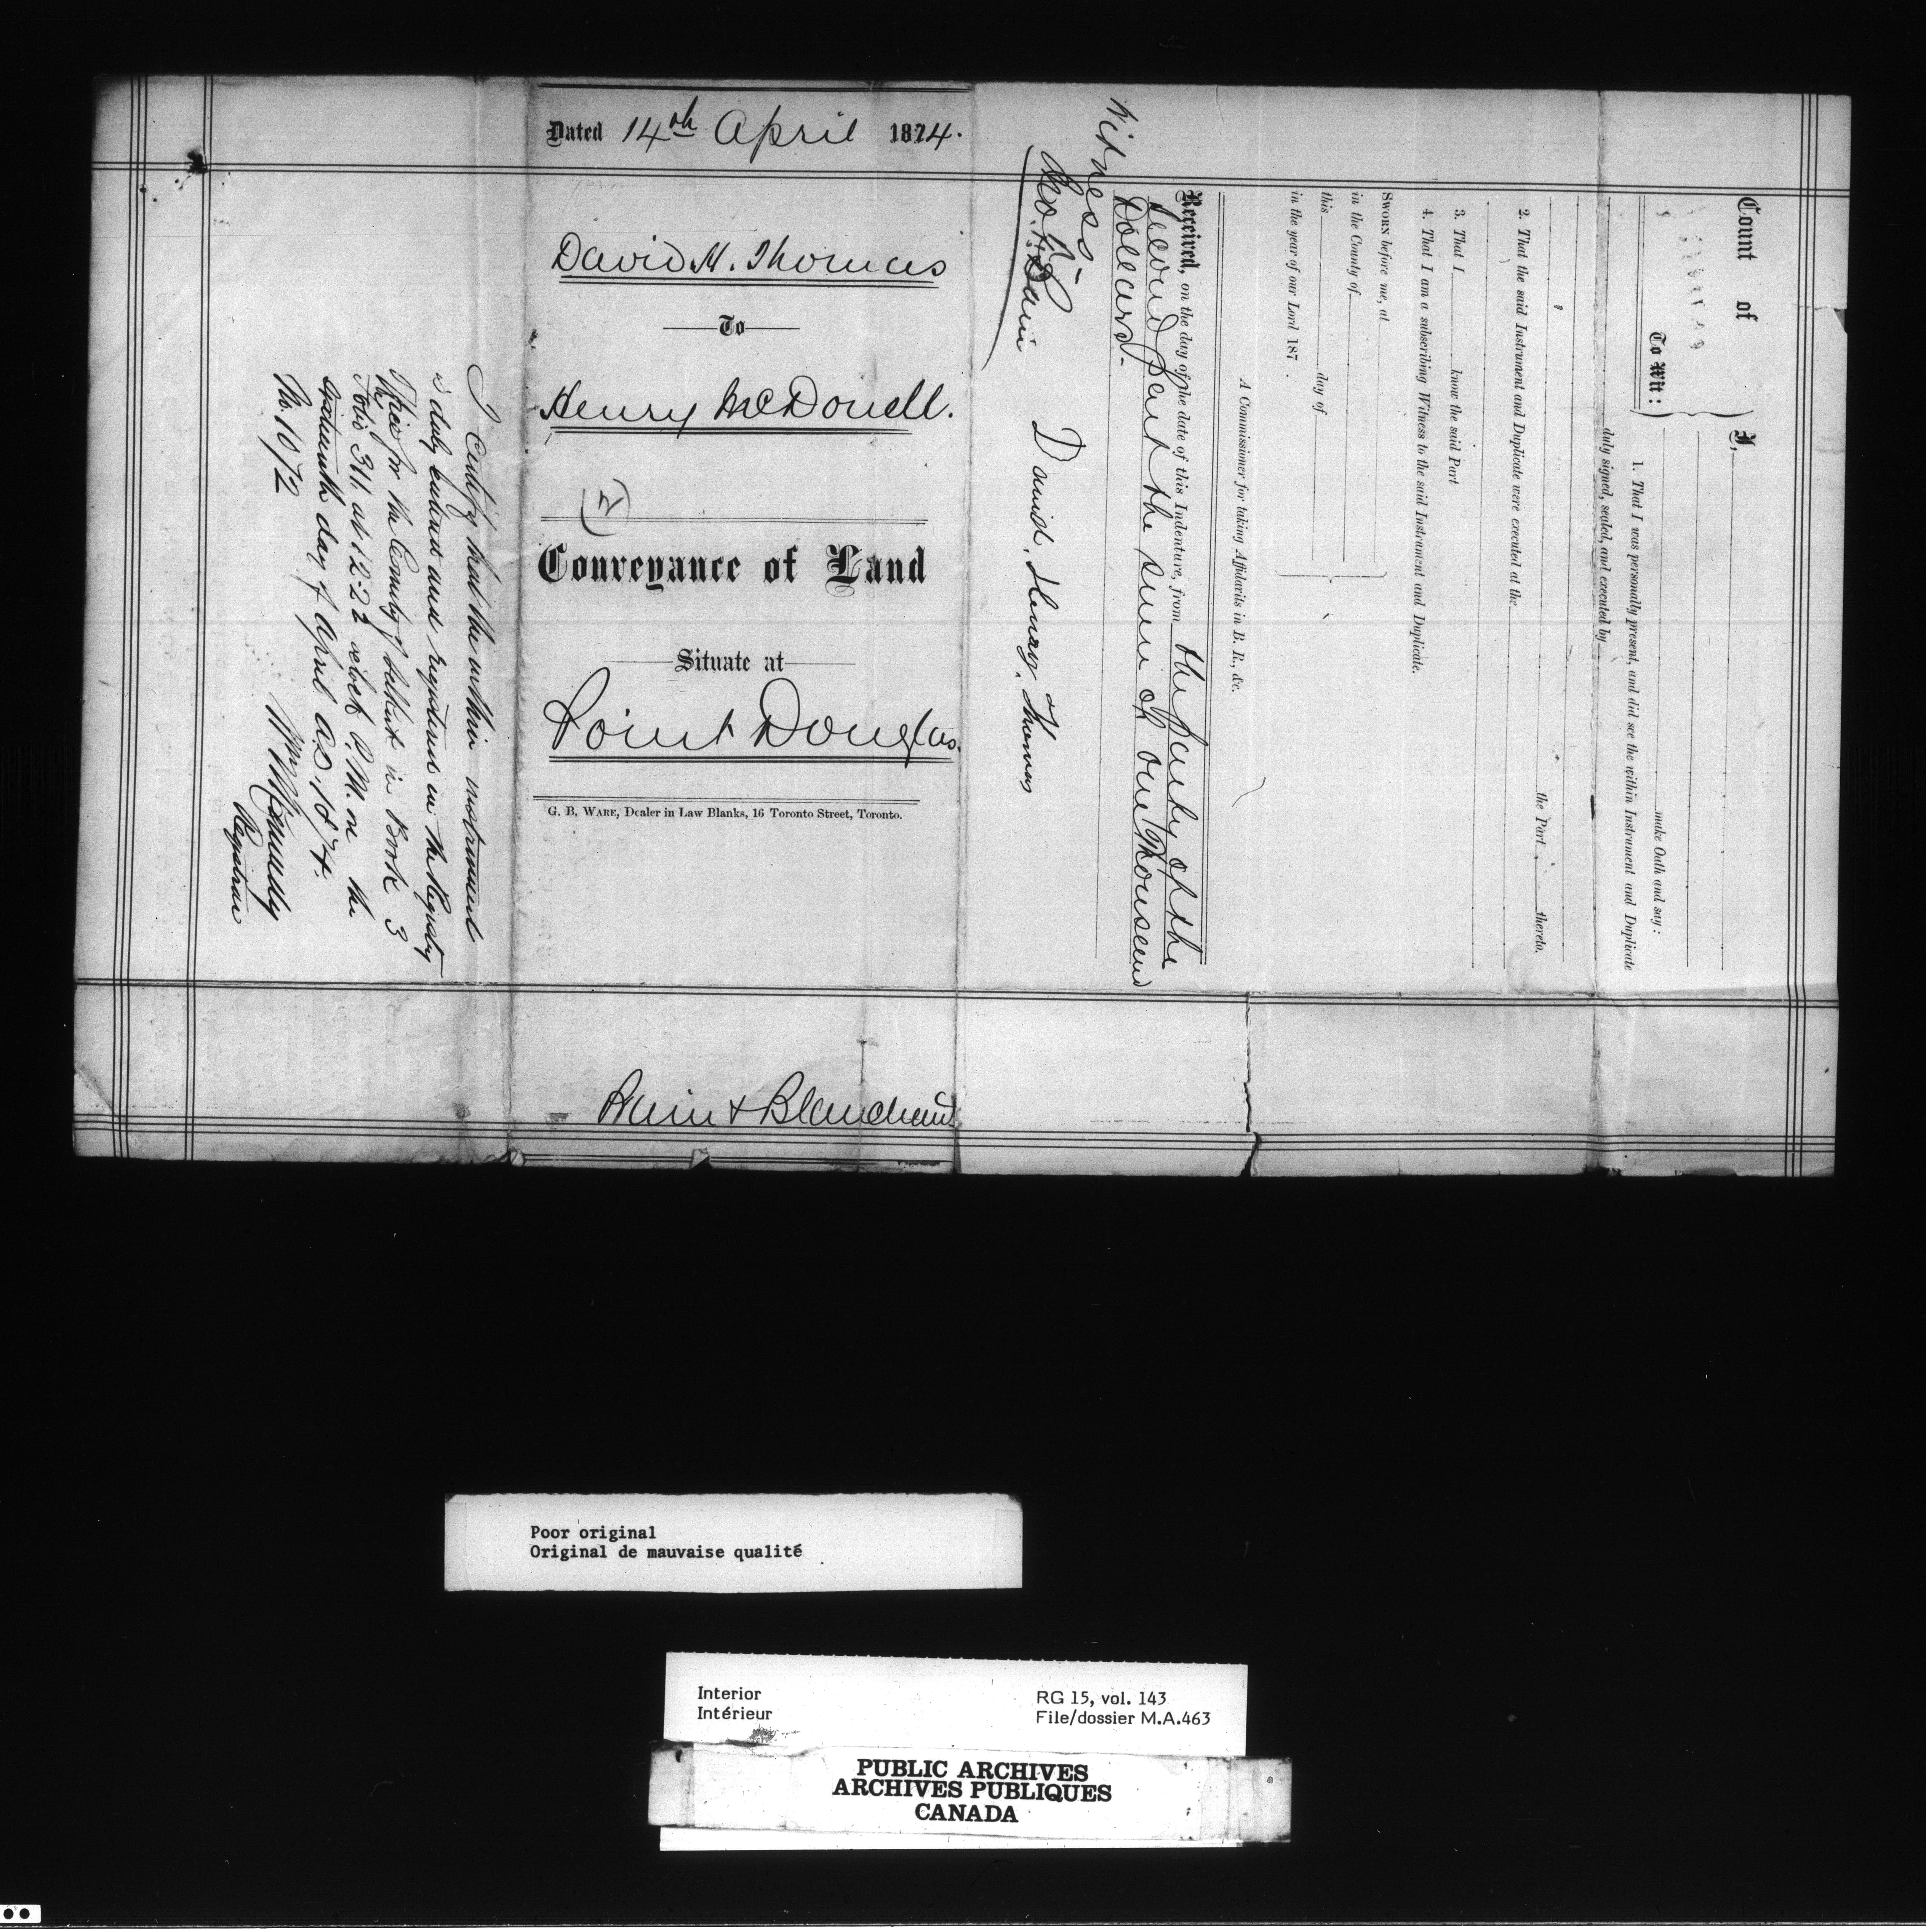 Dated 14th April 1874.
David H. Thomas
To
Henry McDonell.
Conveyance of Land
Situate at
Point Douglas.
G. B. Ware, Dealer in Law Blanks, 16 Toronto Street, Toronto.
Bain & Blanchard
I Certify that the within instrument
is duly entered and registered in the Registry
Office for the County of Selkirk in Book 3
Folio 311 at 12.22 oclock P.M. on the
day of April A.D. 1874.
No. 1072
Wm
Registrar
Count of
To Wit:
I,
make Oath and say:
1. That I was personally present, and did see the within Instrument and Duplicate
duly signed, sealed, and executed by
the Part thereto.
2. That the said Instrument and Duplicate were executed at the
3. That I know the said Part
4. That I am a subscribing Witness to the said Instrument and Duplicate.
Sworn before me, at
in the County of
this day of
in the year of our Lord 187 .
A Commissioner for taking Affidavits in B. R., &c.
Received, on the day of the date of this Indenture, from the party of the
second part the sum of one Thousand
Dollars.
Witness
Jno. F. Bain
David. Henry. Thomas
Poor original
Original de mauvaise qualité
Interior
Intérieur
RG 15, vol. 143
File/dossier M.A.463
PUBLIC ARCHIVES
ARCHIVES PUBLIQUES
CANADA